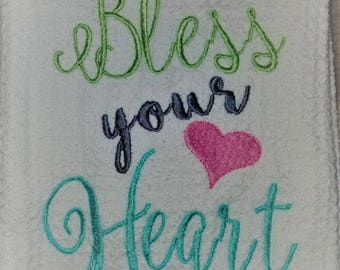 Bless
your
Heart